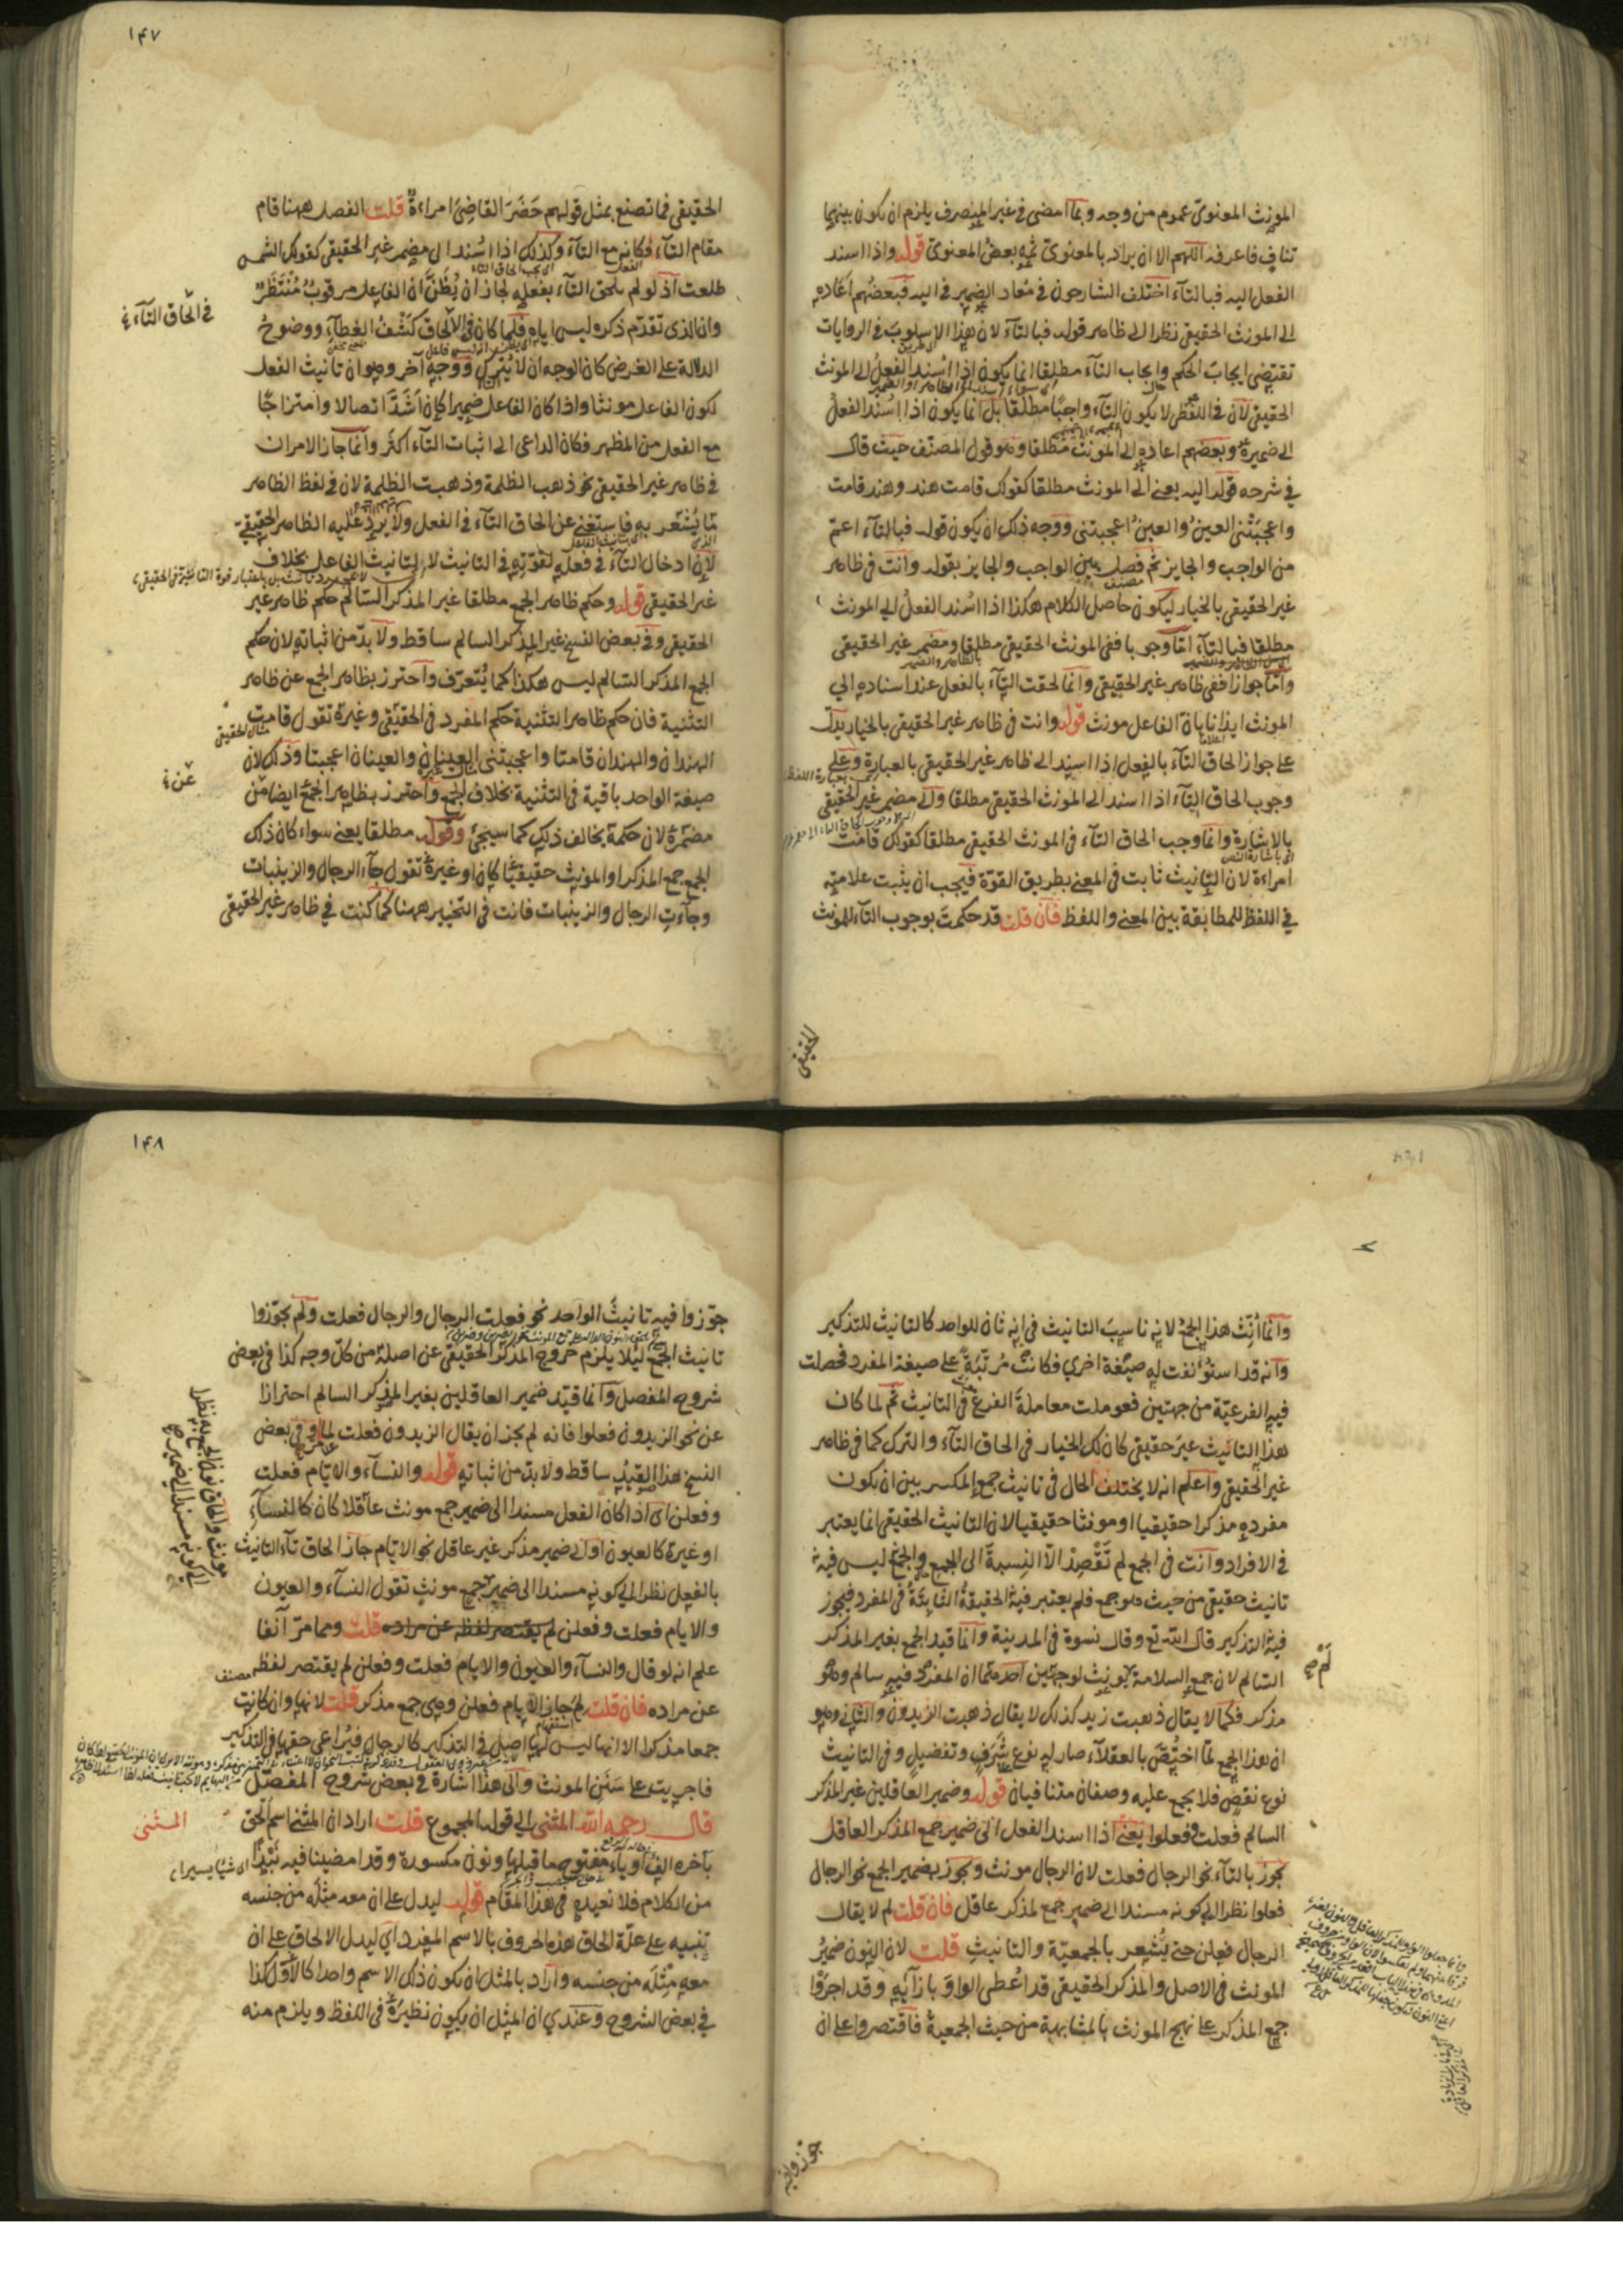 المونث المعنوي عموم من وجه وبما امضى في غير المنصرف يلزم ان يكون بينهما
تناف فاعرفه اللهم الا ان يراد بالمعنوي ثمه بعض المعنوي قوله واذا اسند
الفعل اليه فبالتآء اختلف الشارحون في معاد الضمير في اليه فبعضهم اعاده
الى المونث الحقيقي نظرا الى ظاهر قوله فبالتآء لان هذا الاسلوب في الروايات
تقتضي ايجاب الحكم وايجاب التآء مطلقا انما يكون اذا اسند الفعل الى المونث
الحقيقي لان في اللفظي لا يكون التآء واجبا مطلقا بل انما يكون اذا اسند الفعل
الى ضميره وبعضهم اعاده الى المونث مطلقا وهو قول المصنف حيث قال
في شرحه قوله اليه يعني الى المونث مطلقا كقولك قامت هند وهند قامت
واعجبتني العين والعين اعجبتني ووجه ذلك ان يكون قوله فبالتآء اعم
من الواجب والجايز ثم فصل بين الواجب والجايز بقوله وانت في ظاهر
غير الحقيقي بالخيار ليكون حاصل الكلام هكذا اذا اسند الفعل الى المونث
مطلقا فبالتآء اما وجوبا ففي المونث الحقيقي مطلقا ومضمر غير الحقيقي
واما جوازا ففي ظاهر غير الحقيقي وانما لحقت التآء بالفعل عند اسناده الى
المونث ايذانا بان الفاعل مونث قوله وانت في ظاهر غير الحقيقي بالخيار يدل
على جواز الحاق التآء بالفعل اذا اسند الى ظاهر غير الحقيقي بالعبارة وعلى
وجوب الحاق التآء اذا اسند الى المونث الحقيقي مطلقا والى مضمر غير الحقيقي
بالاشارة وانما وجب الحاق التآء في المونث الحقيقي مطلقا كقولك قامت
امراءة لان التانيث ثابت في المعنى بطريق القوة فيجب ان يثبت علامته
في اللفظ للمطابقة بين المعنى واللفظ فان قلت قد حكمت بوجوب التآء للمونث
الحقيقي
١٤٧
الحقيقي فما تصنع بمثل قولهم حضر القاضي امراءة قلت الفصل ههنا قام
مقام التآء فكانه مع التآء وكذلك اذا اسند الى مضمر غير الحقيقي كقولك الشمس
طلعت اذ لو لم يلحق التآء بفعله لجاز ان يظن ان الفاعل مرقوب منتظر
وان الذي تقدم ذكره ليس اياه فلما كان في الالحاق كشف الغطآء ووضوح
في الحاق التآء
الدلالة على الغرض كان الوجه ان لا يترك ووجه آخر وهو ان تانيث الفعل
لكون الفاعل مونثا واذا كان الفاعل ضميرا كان اشد اتصالا وامتزاجا
مع الفعل من المظهر فكان الداعي الى اثبات التآء اكثر وانما جاز الامران
في ظاهر غير الحقيقي نحو ذهب الظلمة وذهبت الظلمة لان في لفظ الظاهر
ما يشعر به فاستغنى عن الحاق التآء في الفعل ولا يرد عليه الظاهر الحقيقي
لان ادخال التآء في فعله لقوته في التانيث لا لتانيث الفاعل بخلاف
غير الحقيقي قوله وحكم ظاهر الجمع مطلقا غير المذكر السالم حكم ظاهر غير
الحقيقي وفي بعض النسخ غير المذكر السالم ساقط ولا بد من اثباته لان حكم
الجمع المذكر السالم ليس هكذا كما يتعرف واحترز بظاهر الجمع عن ظاهر
التثنية فان حكم ظاهر التثنية حكم المفرد في الحقيقي وغيره تقول قامت
الهندان والهندان قامتا واعجبتني العينان والعينان اعجبتا وذلك لان
صيغة الواحد باقية في التثنية بخلاف الجمع واحترز بظاهر الجمع ايضا من
عن
مضمره لان حكمه يخالف ذلك كما سيجئ وقوله مطلقا يعني سواء كان ذلك
الجمع جمع المذكر او المونث حقيقيا كان او غيره تقول جآء الرجال والزينبات
وجآءت الرجال والزينبات فانت في التخيير ههنا كما كنت في ظاهر غير الحقيقي
وانما انث هذا الجمع لانه ناسب التانيث في انه ثان للواحد كالتانيث للتذكير
وانه قد استؤنفت له صيغة اخرى فكانت مرتبة على صيغة المفرد فحصلت
فيه الفرعية من جهتين فعوملت معاملة الفرع في التانيث ثم لما كان
هذا التانيث غير حقيقي كان لك الخيار في الحاق التآء والترك كما في ظاهر
غير الحقيقي واعلم انه لا يختلف الحال في تانيث جمع المكسر بين ان يكون
مفرده مذكرا حقيقيا او مونثا حقيقيا لان التانيث الحقيقي انما يعتبر
في الافراد وانت في الجمع لم تقصد الا النسبة الى الجمع والجمع ليس فيه
تانيث حقيقي من حيث هو جمع فلم يعتبر فيه الحقيقة الثابتة في المفرد فيجوز
فيه التذكير قال الله تع وقال نسوة في المدينة وانما قيد الجمع بغير المذكر
السالم لان جمع السلامة لم يونث لوجهين احدهما ان المفرد فيه سالم وهو
مذكر فكما لا يقال ذهبت زيد كذلك لا يقال ذهبت الزيدون والثاني وهو
ان هذا الجمع لما اختص بالعقلآء صار له نوع شرف وتفضيل وفي التانيث
نوع نقص فلا يجمع عليه وصفان متنافيان قوله وضمير العاقلين غير المذكر
السالم فعلت وفعلوا يعني اذا اسند الفعل الى ضمير جمع المذكر العاقل
يجوز بالتآء نحو الرجال فعلت لان الرجال مونث ويجوز بضمير الجمع نحو الرجال
فعلوا نظرا الى كونه مسندا الى ضمير جمع لمذكر عاقل فان قلت لم لا يقال
الرجال فعلن حتى يشعر بالجمعية والتانيث قلت لان النون ضمير
المونث في الاصل والمذكر الحقيقي قد اعطى الواو بازآئه وقد اجروا
جمع المذكر على نهج المونث بالمشابهة من حيث الجمعية فاقتصروا على ان
جوزوا فيه
١٤٨
جوزوا فيه تانيث الواحد نحو فعلت الرجال والرجال فعلت ولم يجوزوا
تانيث الجمع ليلا يلزم خروج المذكر الحقيقي عن اصله من كل وجه كذا في بعض
شروح المفصل وانما قيد ضمير العاقلين بغير المذكر السالم احترازا
عن نحو الزيدون فعلوا فانه لم يجز ان يقال الزيدون فعلت لما مر وفي بعض
النسخ هذا القيد ساقط ولا بد من اثباته قوله والنسآء والايام فعلت
وفعلن اى اذا كان الفعل مسندا الى ضمير جمع مونث عاقلا كان كالنسآء
او غيره كالعيون او الى ضمير مذكر غير عاقل نحو الايام جاز الحاق تآء التانيث
بالفعل نظرا الى كونه مسندا الى ضمير جمع مونث تقول النسآء والعيون
مونث والحاق نون الجمع به نظرا الى كونه مسندا الى ضمير
والايام فعلت وفعلن لم يقتصر لفظه عن مراده قلت ومما مر آنفا
علم انه لو قال والنسآء والعيون والايام فعلت وفعلن لم يقتصر لفظه
عن مراده فان قلت لم جاز الايام فعلن وهي جمع مذكر قلت لانها وان كانت
جمعا مذكرا الا انها ليس لها اصل في التذكير كالرجال فيراعى حقها في التذكير
فاجريت على سنن المونث والى هذا اشارة في بعض شروح المفصل
المثنى
قال رحمه الله المثنى الى قوله المجموع قلت اراد ان المثنى اسم الحق
بآخره الف او يآء مفتوح ما قبلها ونون مكسورة وقد امضينا فيه نبذا
من الكلام فلا نعيده في هذا المقام قوله ليدل على ان معه مثله من جنسه
تنبيه على علة الحاق هذه الحروف بالاسم المفرد اي ليدل الالحاق على ان
معه مثله من جنسه واراد بالمثل ان يكون ذلك الاسم واحدا كالاول كذا
في بعض الشروح وعندي ان المثل ان يكون نظيره في اللفظ ويلزم منه